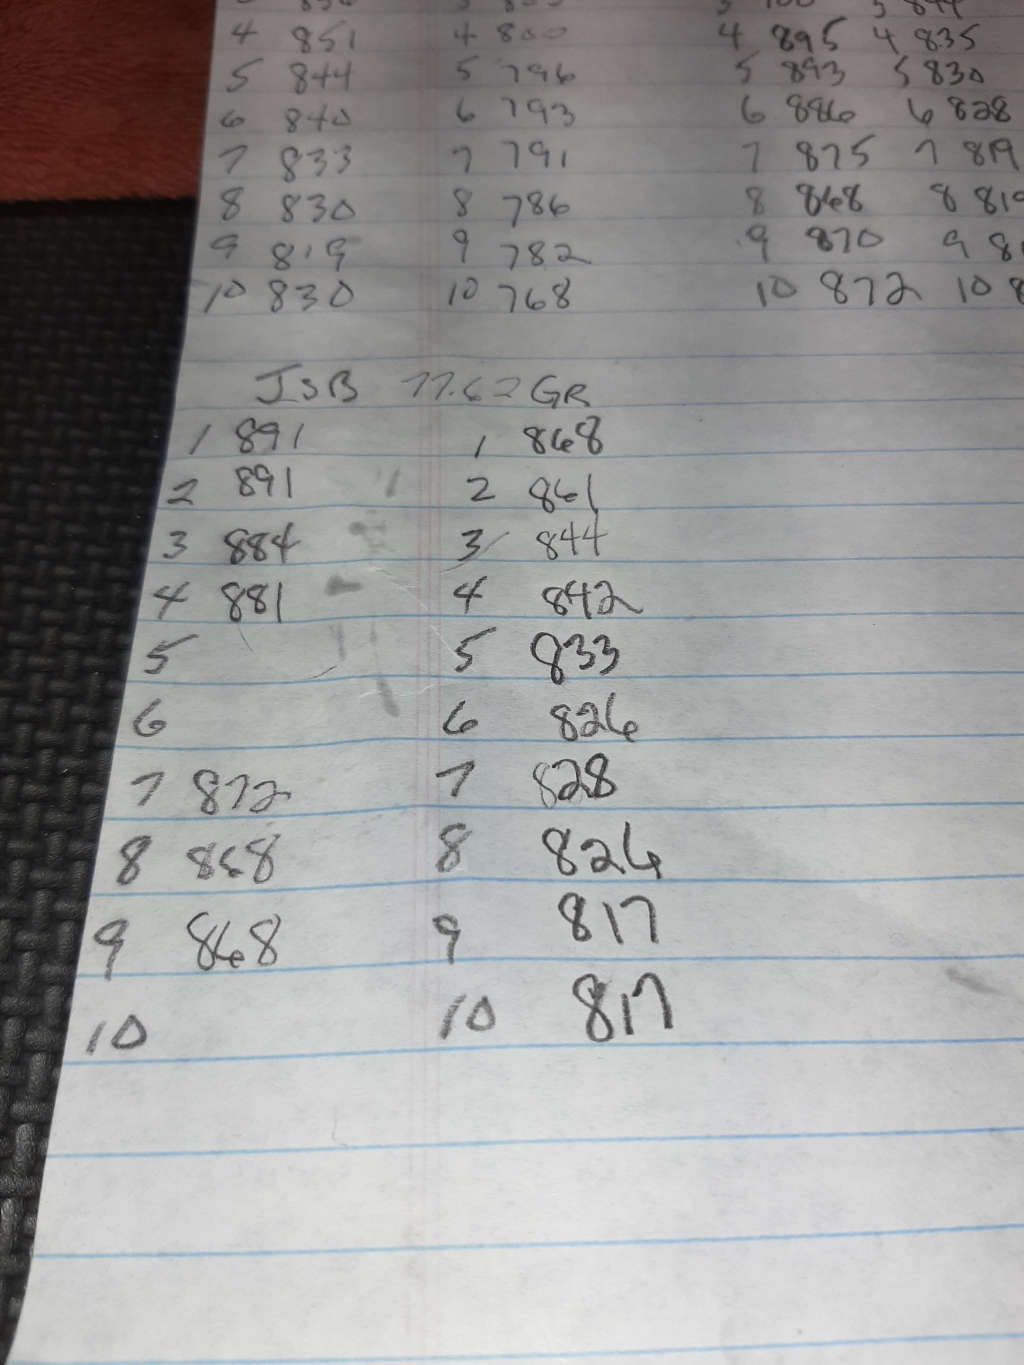 4 851 4 800 4 895 4 835
5 844 5 796 5 893 5 830
6 840 6 793 6 886 6 828
7 833 7 791 7 875 7 819
8 830 8 786 8 868 8 819
9 819 9 782 9 870 9
10 830 10 768 10 872 10
JSB 77.62 GR
1 891 1 868
2 891 2 861
3 884 3 844
4 881 4 842
5 5 833
6 6 826
7 872 7 828
8 868 8 824
9 868 9 817
10 10 817